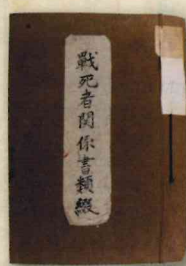 戰死者関係書類綴